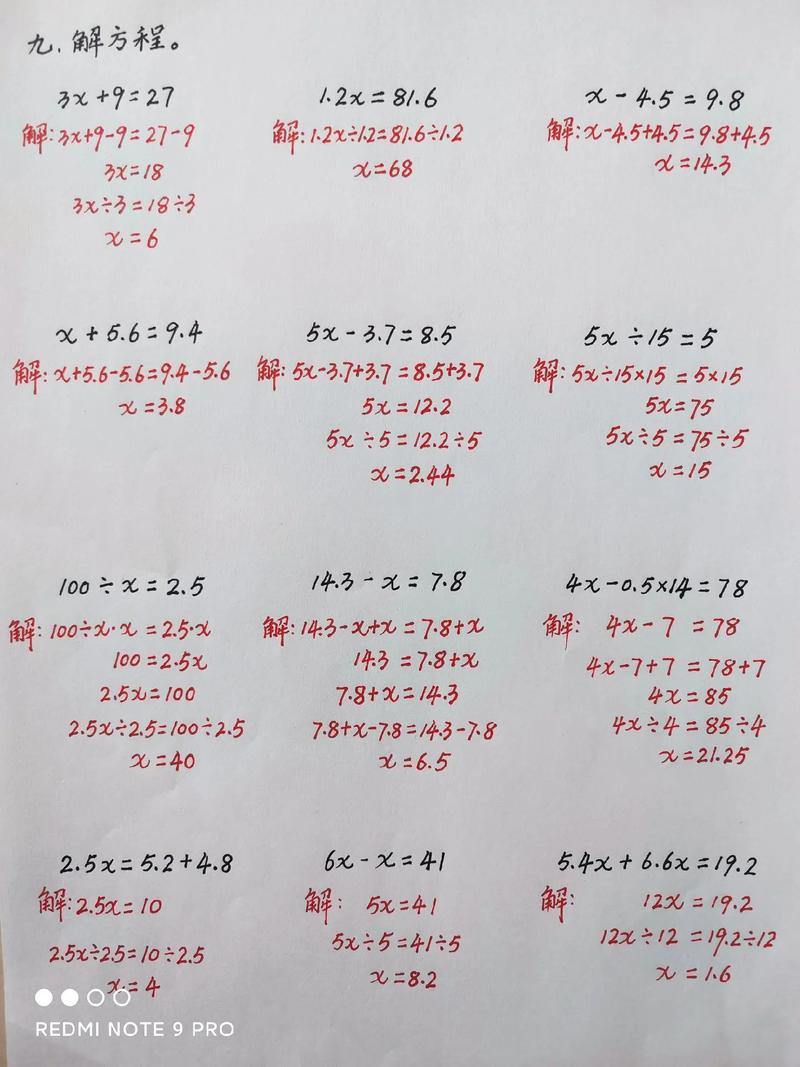 九、解方程。
3x+9=27
解:3x+9-9=27-9
3x=18
3x÷3=18÷3
x=6
1.2x=81.6
解:1.2x÷1.2=81.6÷1.2
x=68
x-4.5=9.8
解:x-4.5+4.5=9.8+4.5
x=14.3
x+5.6=9.4
解:x+5.6-5.6=9.4-5.6
x=3.8
5x-3.7=8.5
解:5x-3.7+3.7=8.5+3.7
5x=12.2
5x÷5=12.2÷5
x=2.44
5x÷15=5
解:5x÷15×15=5×15
5x=75
5x÷5=75÷5
x=15
100÷x=2.5
解:100÷x·x=2.5·x
100=2.5x
2.5x=100
2.5x÷2.5=100÷2.5
x=40
14.3-x=7.8
解:14.3-x+x=7.8+x
14.3=7.8+x
7.8+x=14.3
7.8+x-7.8=14.3-7.8
x=6.5
4x-0.5×14=78
解: 4x-7=78
4x-7+7=78+7
4x=85
4x÷4=85÷4
x=21.25
2.5x=5.2+4.8
解:2.5x=10
2.5x÷2.5=10÷2.5
x=4
6x-x=41
解: 5x=41
5x÷5=41÷5
x=8.2
5.4x+6.6x=19.2
解: 12x=19.2
12x÷12=19.2÷12
x=1.6
REDMI NOTE 9 PRO